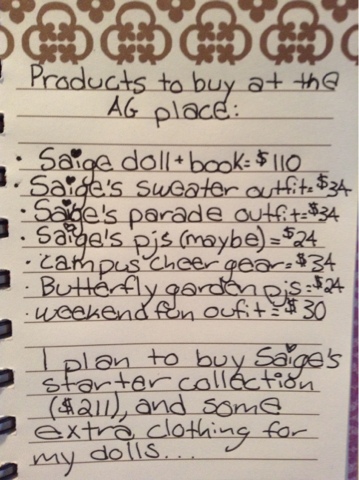 Products to buy at the
AG place:
• Saige doll + book = $110
• Saige's sweater outfit = $34
• Saige's parade outfit = $34
• Saige's pjs (maybe) = $24
• campus cheer gear = $34
• Butterfly garden pjs = $24
• weekend fun oufit = $30
I plan to buy Saige's
starter collection
($211), and some
extra clothing for
my dolls...